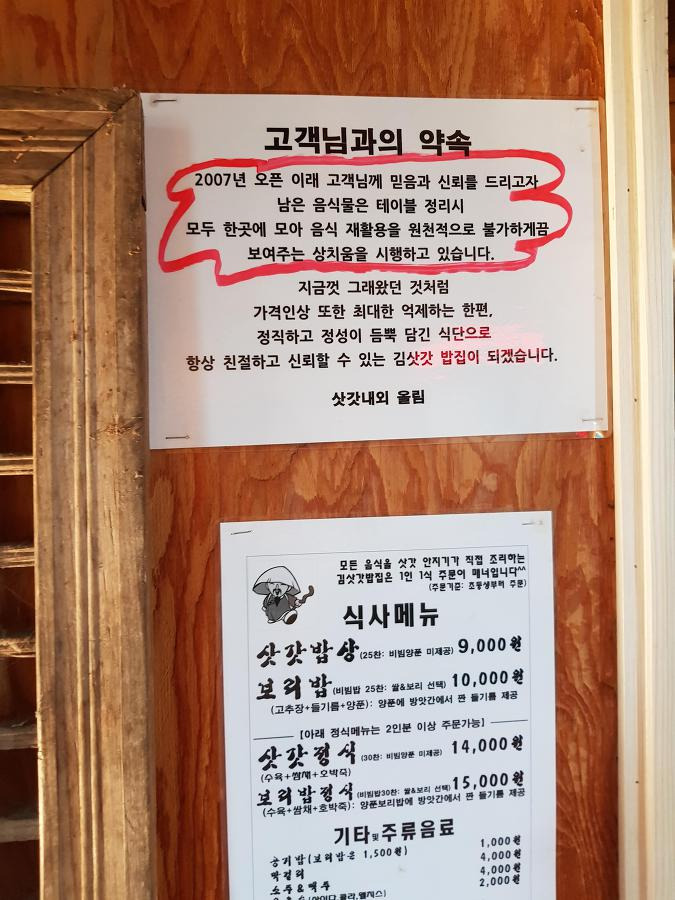 고객님과의 약속
2007년 오픈 이래 고객님께 믿음과 신뢰를 드리고자
남은 음식물은 테이블 정리시
모두 한곳에 모아 음식 재활용을 원천적으로 불가하게끔
보여주는 상치움을 시행하고 있습니다.
지금껏 그래왔던 것처럼
가격인상 또한 최대한 억제하는 한편,
정직하고 정성이 듬뿍 담긴 식단으로
항상 친절하고 신뢰할 수 있는 김삿갓 밥집이 되겠습니다.
삿갓내외 올림
모든 음식을 삿갓 안지기가 직접 조리하는
김삿갓밥집은 1인 1식 주문이 매너입니다^^
(주문기준: 초등생부터 주문)
식사메뉴
삿갓밥상(25찬: 비빔양푼 미제공) 9,000원
보리밥(비빔밥 25찬: 쌀&보리 선택) 10,000원
(고추장+들기름+양푼): 양푼에 방앗간에서 짠 들기름 제공
[아래 정식메뉴는 2인분 이상 주문가능]
삿갓정식(30찬: 비빔양푼 미제공) 14,000원
(수육+쌈채+호박죽)
보리밥정식(비빔밥30찬: 쌀&보리 선택) 15,000원
(수육+쌈채+호박죽): 양푼보리밥에 방앗간에서 짠 들기름 제공
기타및주류음료
공기밥(보리밥은 1,500원) 1,000원
막걸리 4,000원
소주&맥주 4,000원
2,000원